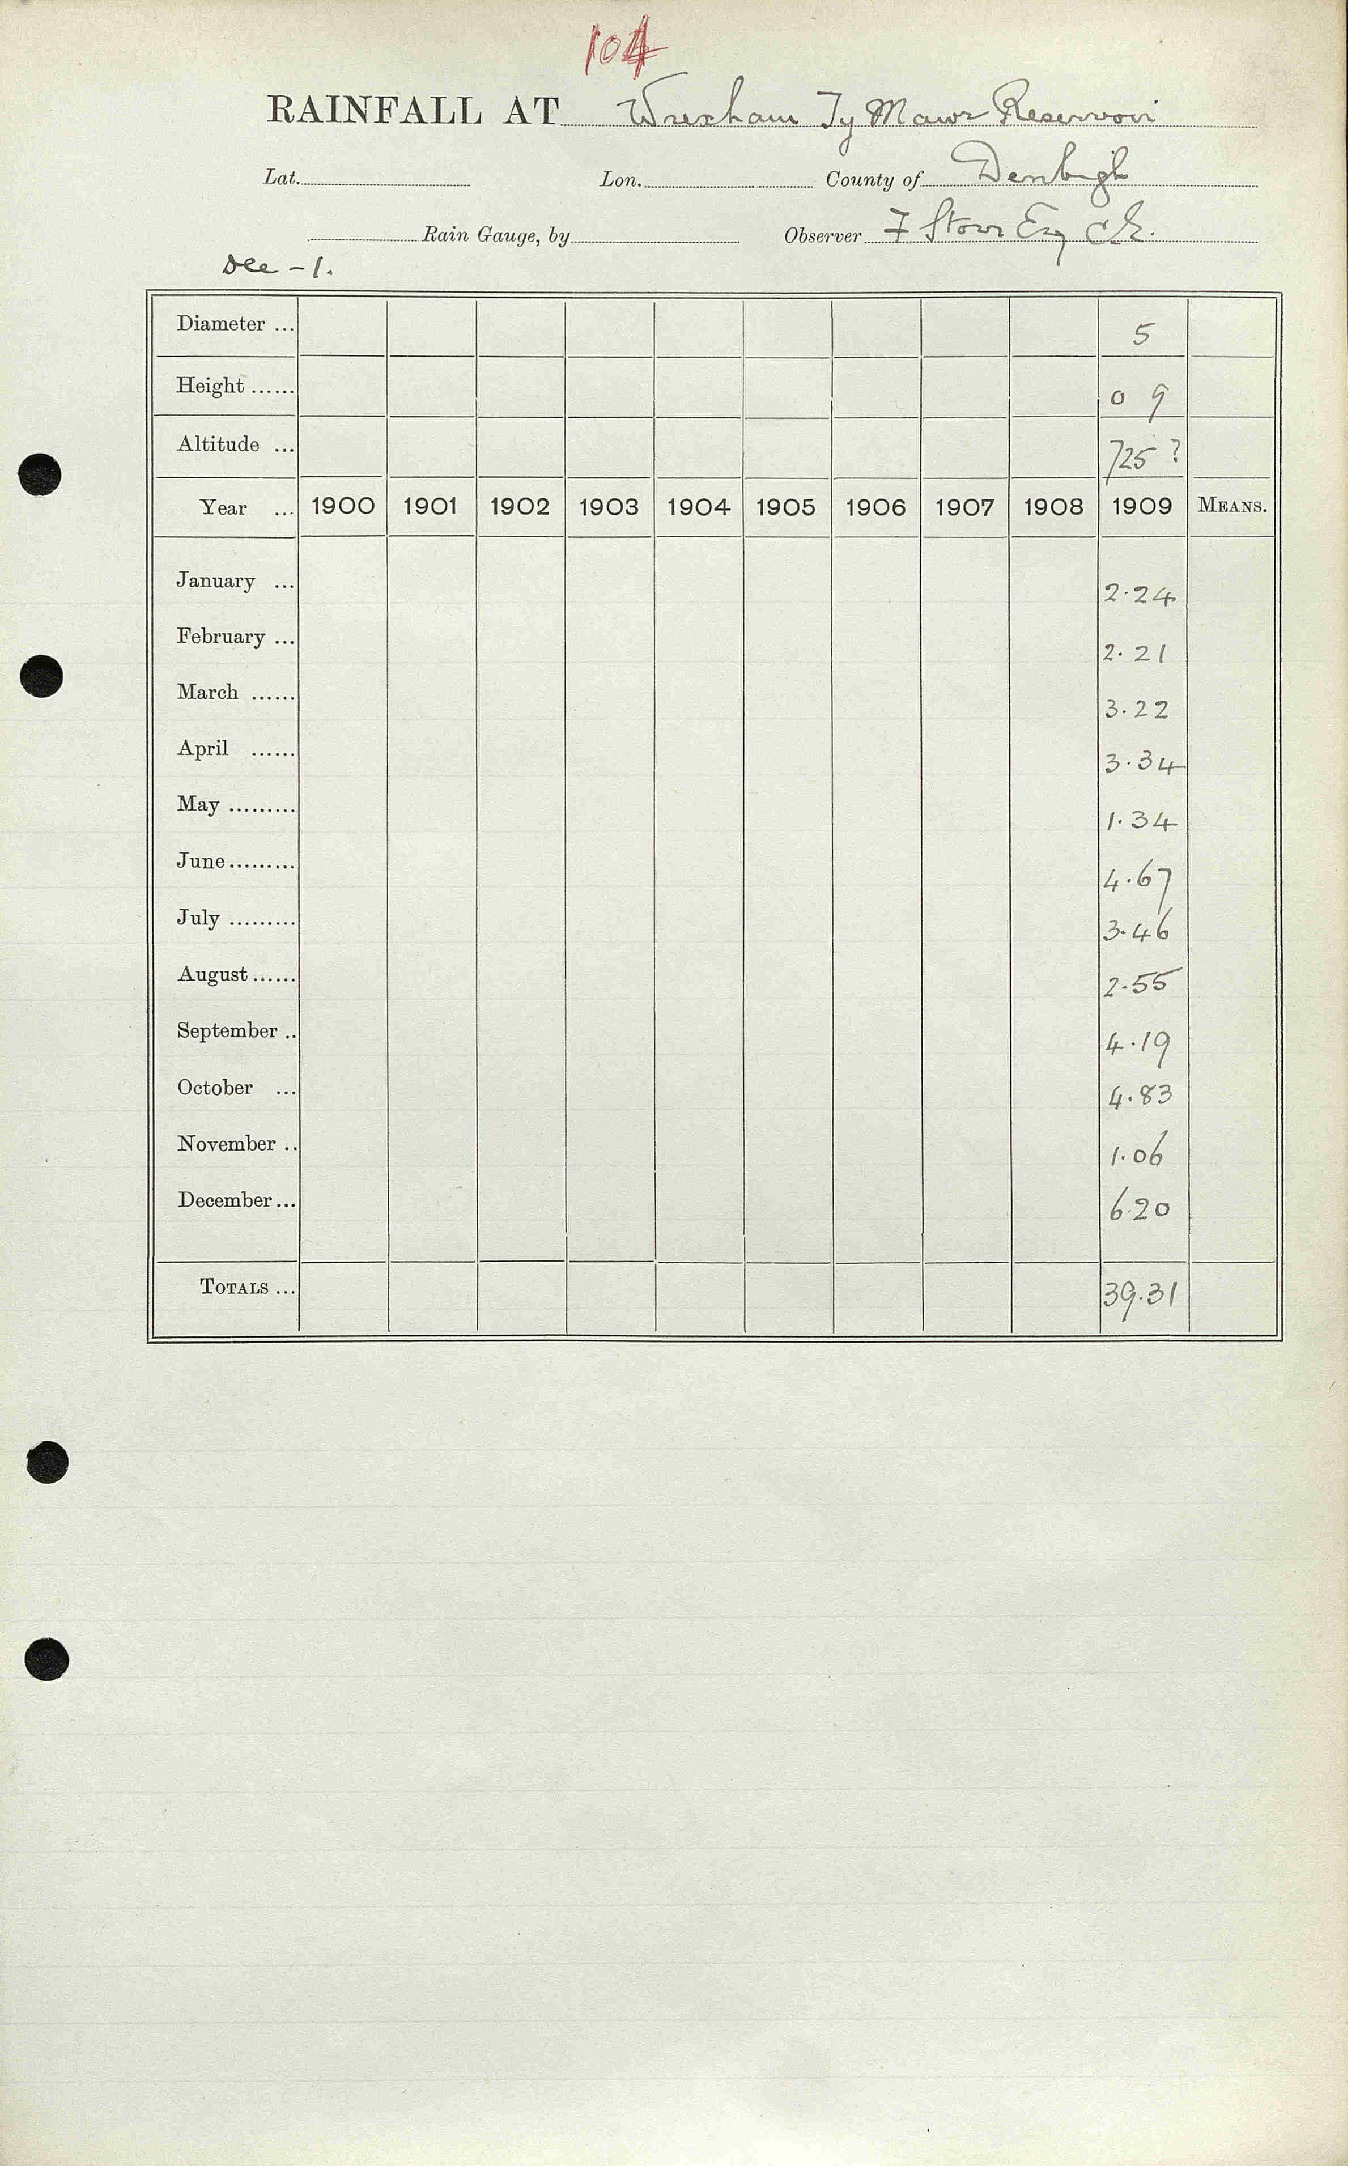 104
RAINFALL AT Wrexham Ty Mawr Reservoir
Lat. Lon. County of Denbigh
Rain Gauge, by Observer F Storr Esq C.E.
Dec - 1.
Diameter ... 5
Height ...... 0 9
Altitude ... 725 ?
Year ... 1900 1901 1902 1903 1904 1905 1906 1907 1908 1909 MEANS.
January ... 2.24
February ... 2.21
March ...... 3.22
April ...... 3.34
May ......... 1.34
June ......... 4.67
July ......... 3.46
August ...... 2.55
September .. 4.19
October ... 4.83
November .. 1.06
December ... 6.20
TOTALS ... 39.31